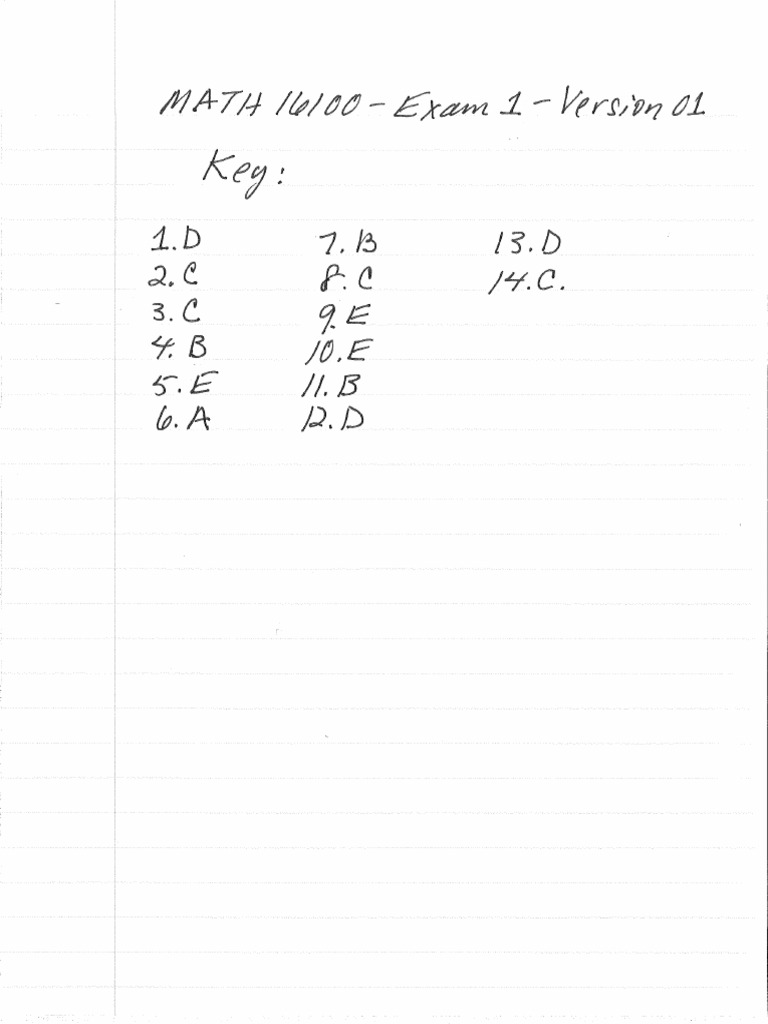 MATH 16100 - Exam 1 - Version 01
Key:
1. D 7. B 13. D
2. C 8. C 14. C.
3. C 9. E
4. B 10. E
5. E 11. B
6. A 12. D